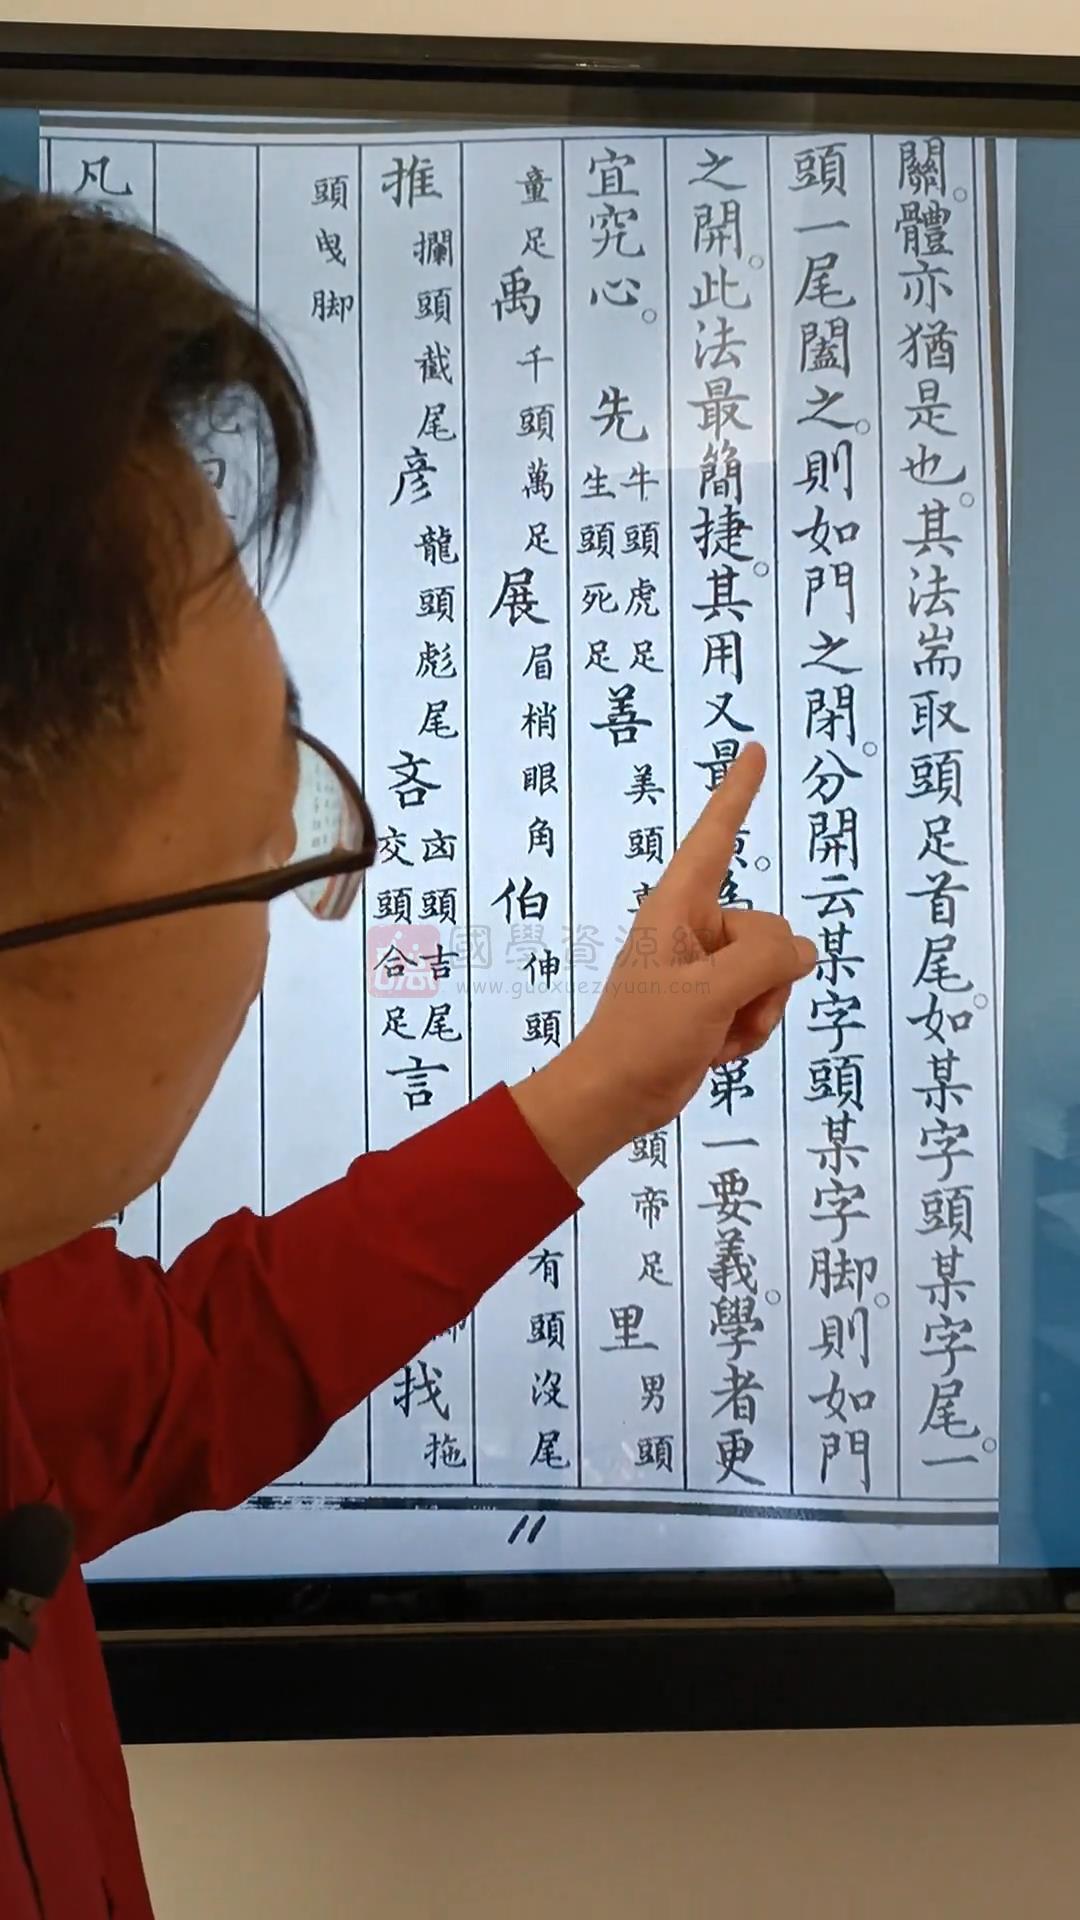 關。體亦猶是也。其法耑取頭足首尾。如某字頭某字尾。一
頭一尾闔之。則如門之閉。分開云某字頭某字脚。則如門
之開。此法最簡捷。其用又最
為
第一要義。學者更
宜究心。
先
牛頭虎足
生頭死足
善
美頭
頭帝足
里
男頭
童足
禹
千頭萬足
展
眉梢眼角
伯
伸頭
有頭沒尾
推
攔頭截尾
彥
龍頭彪尾
吝
卤頭吉尾
交頭合足
言
找
拖
頭曳脚
凡
11
國學資源網
www.guoxueziyuan.com